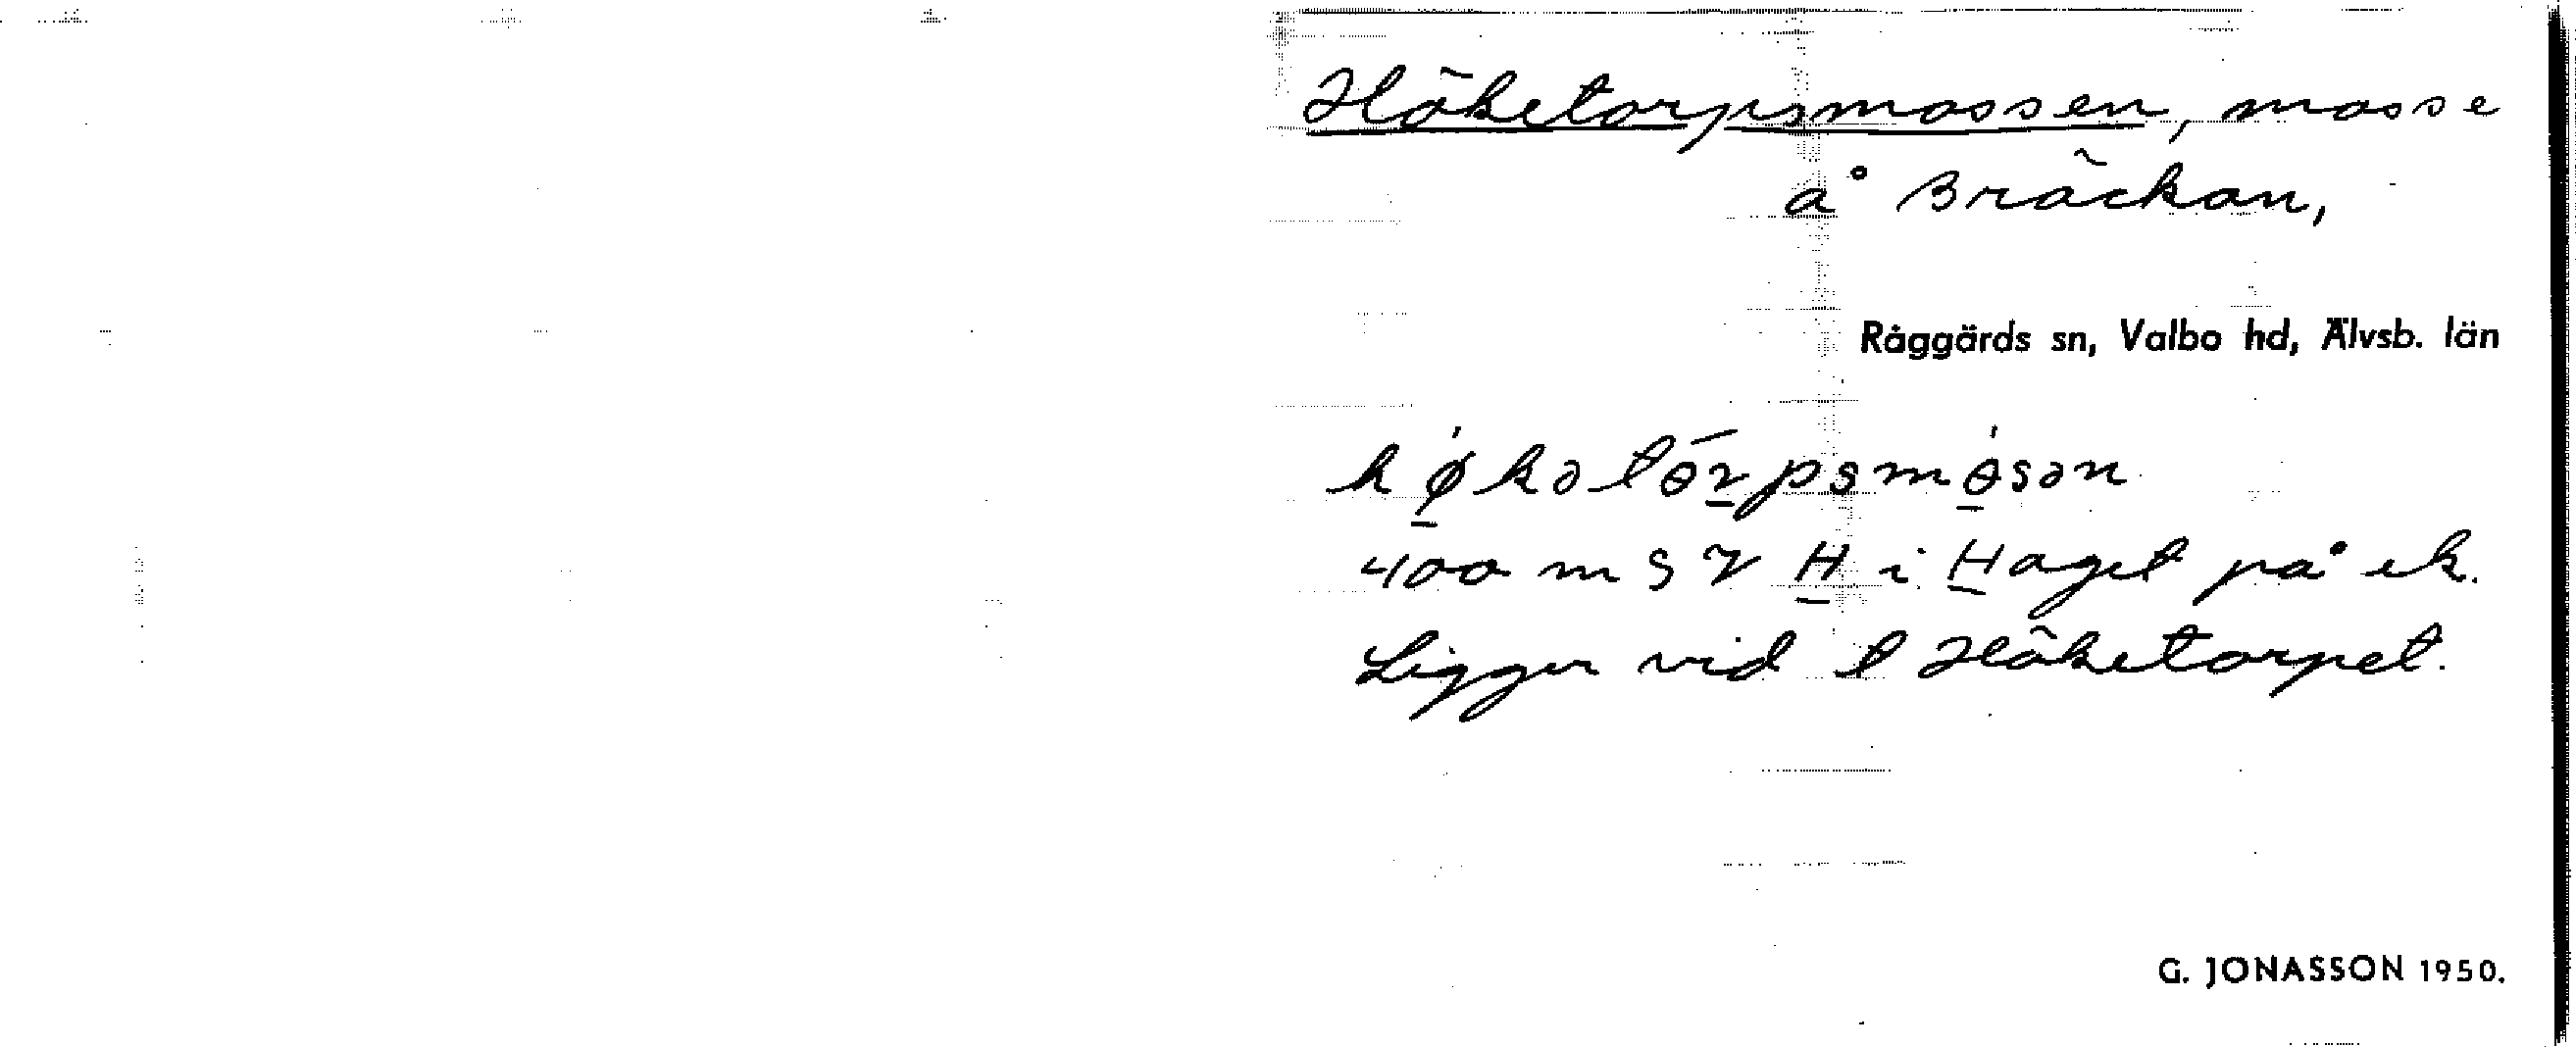 Höketorpsmossen, mosse
å Bräckan,
Råggärds sn, Valbo hd, Älvsb. län
høkətɵrpsmɵsən
400 m S V H i Haget på ek.
Ligger vid t Höketorpet.
G. JONASSON 1950.